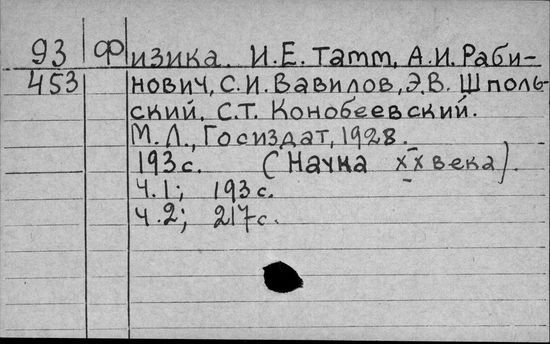 93 Физика. И.Е. Тамм, А.И. Раби-
453 нович, С.И. Вавилов, Э.В. Шполь-
ский, С.Т. Конобеевский.
М.Л., Госиздат, 1928.
193 с. (Наука XX века).
Ч.1; 193 с.
Ч.2; 217 с.